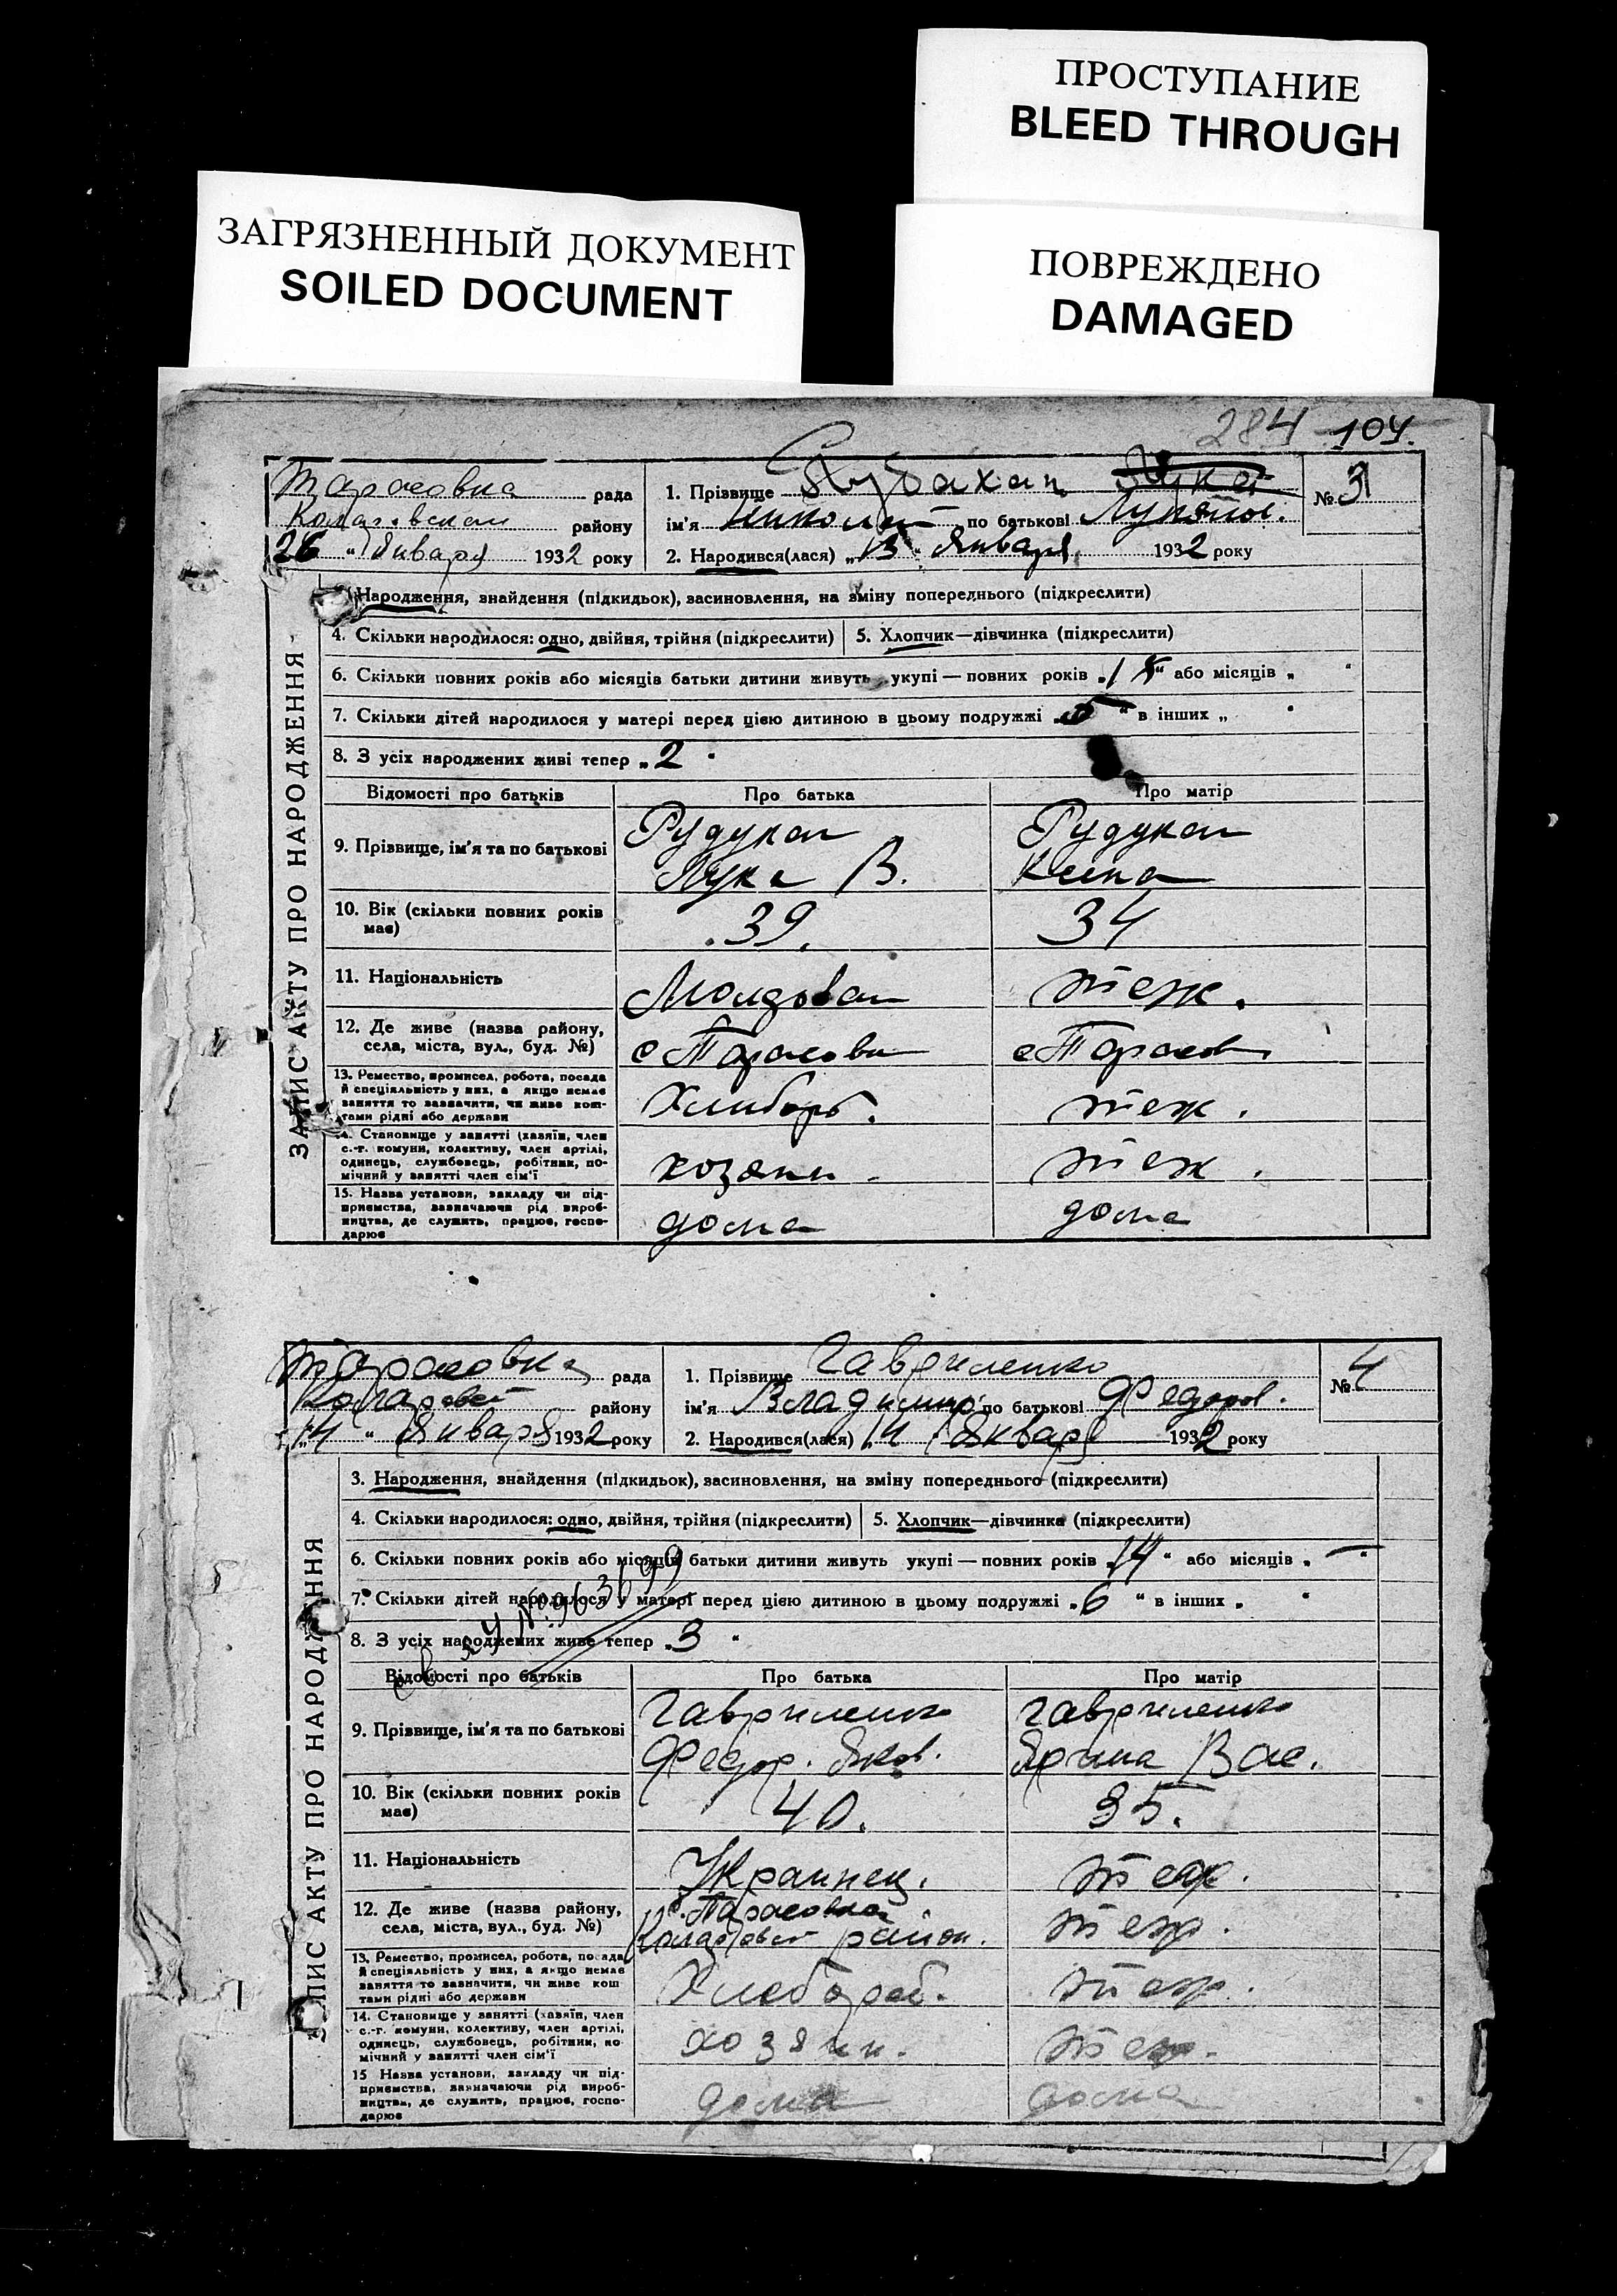 ПРОСТУПАНИЕ
BLEED THROUGH
ЗАГРЯЗНЕННЫЙ ДОКУМЕНТ
SOILED DOCUMENT
ПОВРЕЖДЕНО
DAMAGED
284 104.
ЗАПИС АКТУ ПРО НАРОДЖЕННЯ
Тарасовка рада
району
26 "Января 1932 року
1. Прізвище
ім'я Николай по батькові
2. Народився(лася) „13" Января 1932 року
№ 3
Народження, знайдення (підкидьок), засиновлення, на зміну попереднього (підкреслити)
4. Скільки народилося: одно, двійня, трійня (підкреслити) 5. Хлопчик—дівчинка (підкреслити)
6. Скільки повних років або місяців батьки дитини живуть укупі — повних років „ " або місяців „ "
7. Скільки дітей народилося у матері перед цією дитиною в цьому подружжі „ " в інших „ "
8. З усіх народжених живі тепер „2"
Відомості про батьків Про батька Про матір
9. Прізвище, ім'я та по батькові
Рудукан Рудукан
Лука В.
10. Вік (скільки повних років має) 39. 34
11. Національність Молдован теж.
12. Де живе (назва району, села, міста, вул., буд. №) с Тарасовк с Тарасов
13. Ремество, промисел, робота, посада й спеціяльність у них, а якщо немає заняття то зазначити, чи живе коштами рідні або держави теж.
14. Становище у занятті (хазяїн, член с.-г. комуни, колективу, член артілі, одинець, службовець, робітник, помічний у занятті член сім'ї теж.
15. Назва установи, закладу чи підприємства, зазначаючи рід виробництва, де служить, працює, господарює дома дома
ЗАПИС АКТУ ПРО НАРОДЖЕННЯ
Тарасовка рада
району
„14" Января 1932 року
1. Прізвище Гавриленко
ім'я Владимир по батькові Федоров.
2. Народився(лася) „14 Января 1932 року
№ 4
3. Народження, знайдення (підкидьок), засиновлення, на зміну попереднього (підкреслити)
4. Скільки народилося: одно, двійня, трійня (підкреслити) 5. Хлопчик—дівчинка (підкреслити)
6. Скільки повних років або місяців батьки дитини живуть укупі — повних років „14" або місяців „—"
7. Скільки дітей народилося у матері перед цією дитиною в цьому подружжі „6" в інших „ "
8. З усіх народжених живе тепер „3"
Відомості про батьків Про батька Про матір
9. Прізвище, ім'я та по батькові
Гавриленко Гавриленко
Федор. Яков. Вас.
10. Вік (скільки повних років має) 40. 35.
11. Національність Украинец. теж.
12. Де живе (назва району, села, міста, вул., буд. №) с. Тарасовка район. теж.
13. Ремество, промисел, робота, посада й спеціяльність у них, а якщо немає заняття то зазначити, чи живе коштами рідні або держави Хлебороб. теж.
14. Становище у занятті (хазяїн, член с.-г. комуни, колективу, член артілі, одинець, службовець, робітник, помічний у занятті член сім'ї хозяин. теж.
15 Назва установи, закладу чи підприємства, зазначаючи рід виробництва, де служить, працює, господарює дома дома